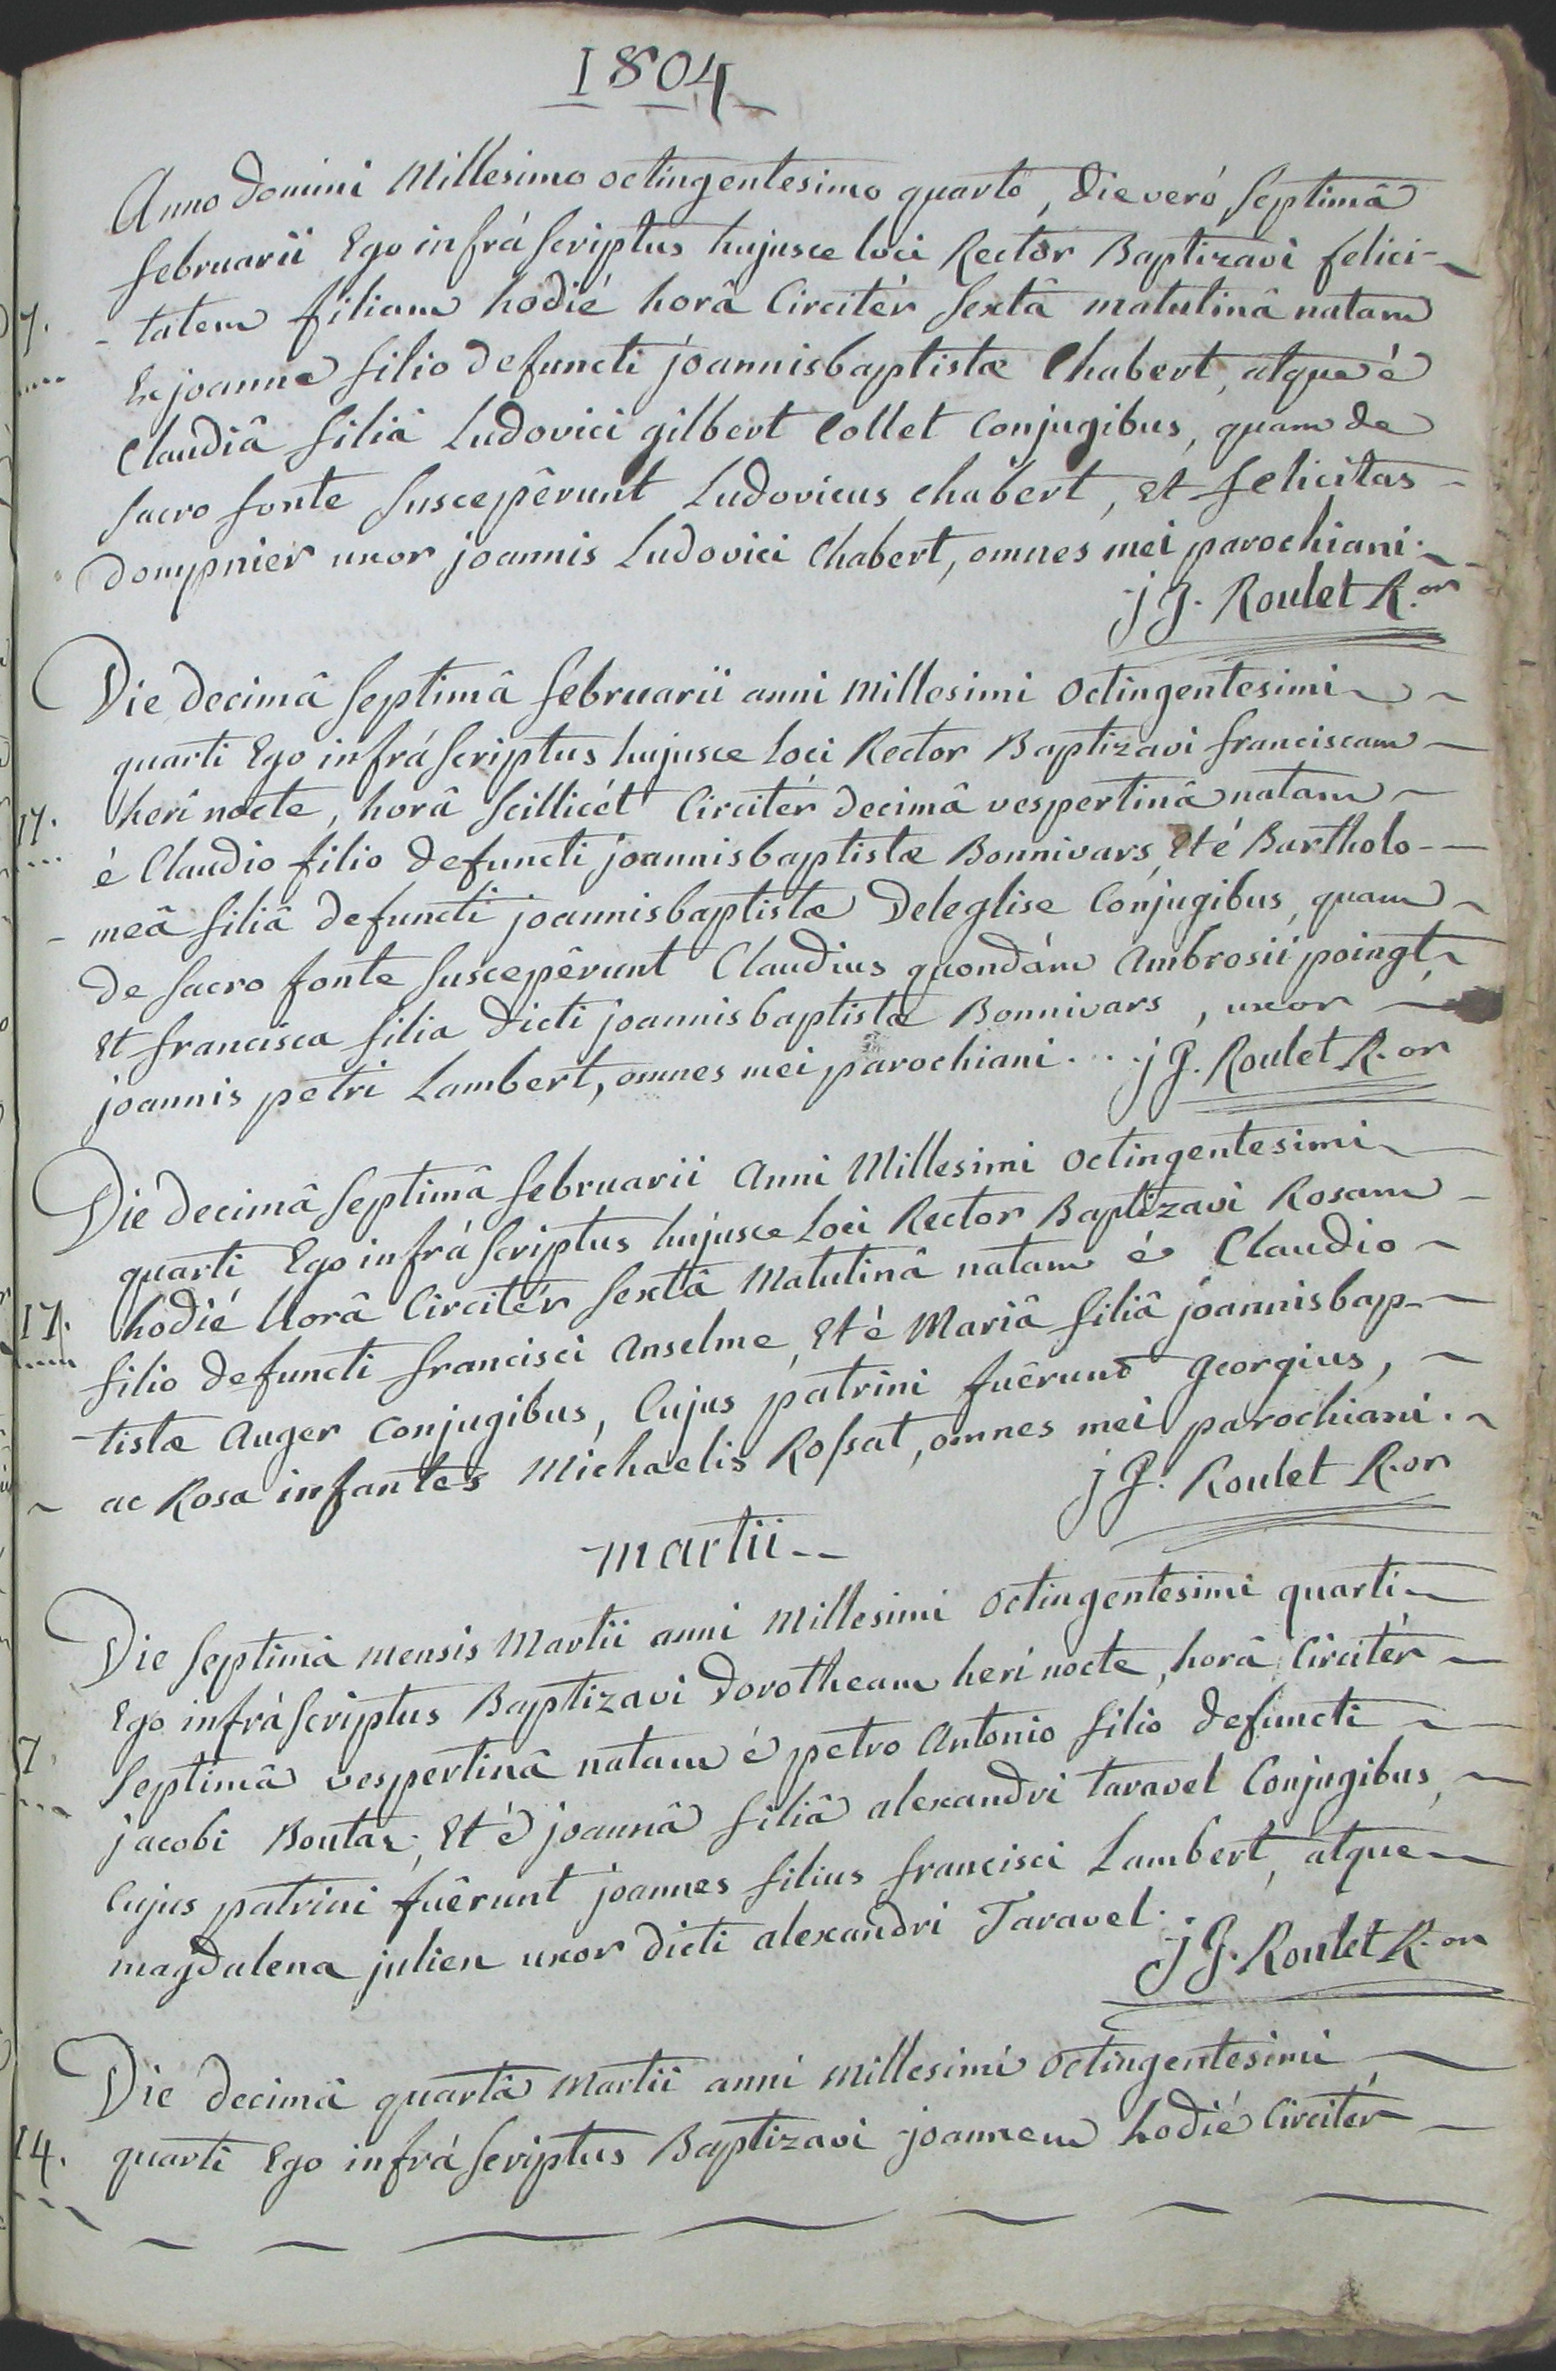 1804
Anno Domini Millesimo octingentesimo quarto, die veró septimâ
februarii Ego infrá scriptus hujusce loci Rector Baptizavi felici-
7. - tatem filiam hodié horâ Circitér sextâ matutinâ natam
Ex joanne filio defuncti joannisbaptistæ Chabert, atque é
Claudiâ filiâ Ludovici gilbert Collet Conjugibus, quam de
sacro fonte suscepêrunt Ludovicus Chabert, et felicitas
dompnier uxor joannis Ludovici Chabert, omnes mei parochiani.
j J. Roulet R.or
Die decimâ septimâ februarii anni Millesimi Octingentesimi
quarti Ego infrá scriptus hujusce loci Rector Baptizavi franciscam
17. herì nocte, horâ scillicét Circitér decimâ vespertinâ natam
é Claudio filio defuncti joannisbaptistæ Bonnivars, Et é Bartholo-
- meâ filiâ defuncti joannisbaptistæ Deleglise Conjugibus, quam
de sacro fonte suscepêrunt Claudius quondám Ambrosii poingt,
Et francisca filia dicti joannisbaptistæ Bonnivars, uxor
joannis petri Lambert, omnes mei parochiani... j J. Roulet R.or
Die decimâ septimâ februarii Anni Millesimi Octingentesimi
quarti Ego infrá scriptus hujusce Loci Rector Baptizavi Rosam
17. hodié horâ Circitér sextâ Matutinâ natam é Claudio
filio defuncti francisci Anselme, Et é Mariâ filiâ joannisbap-
- tistæ Auger Conjugibus, Cujus patrini fuêrunt Georgius,
ac Rosa infantes Michaelis Rossat, omnes mei parochiani.
j J. Roulet R.or
martii
Die septimâ mensis Martii anni Millesimi Octingentesimi quarti
Ego infrá scriptus Baptizavi Dorotheam herì nocte, horâ Circitér
7. septimâ vespertinâ natam é petro Antonio filio defuncti
jacobi Boutaz, Et é joannâ filiâ alexandri taravel Conjugibus,
Cujus patrini fuêrunt joannes filius francisci Lambert, atque
magdalena julien uxor dicti alexandri Taravel.
j J. Roulet R.or
Die decimâ quartâ Martii anni Millesimi Octingentesimi
14. quarti Ego infrá scriptus Baptizavi joannem hodié Circitér